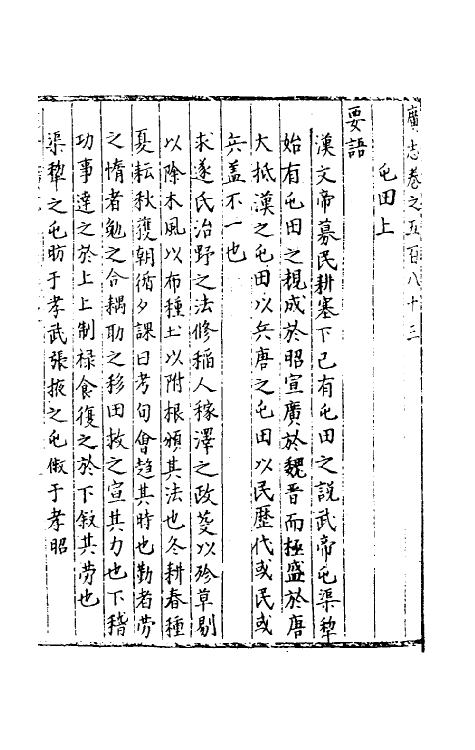 廣志卷之五百八十三
屯田上
要語
漢文帝募民耕塞下已有屯田之說武帝屯渠犂
始有屯田之規成於昭宣廣於魏晉而極盛於唐
大抵漢之屯田以兵唐之屯田以民歷代或民或
兵盖不一也
求遂氏治野之法修稲人稼澤之政芟以殄草剔
以除木風以布種土以附根頒其法也冬耕春種
夏耘秋穫朝循夕課日考旬會趍其時也勤者勞
之惰者勉之合耦助之移田救之宣其力也下稽
功事達之於上上制禄食復之於下敘其勞也
渠犂之屯昉于孝武張掖之屯倣于孝昭